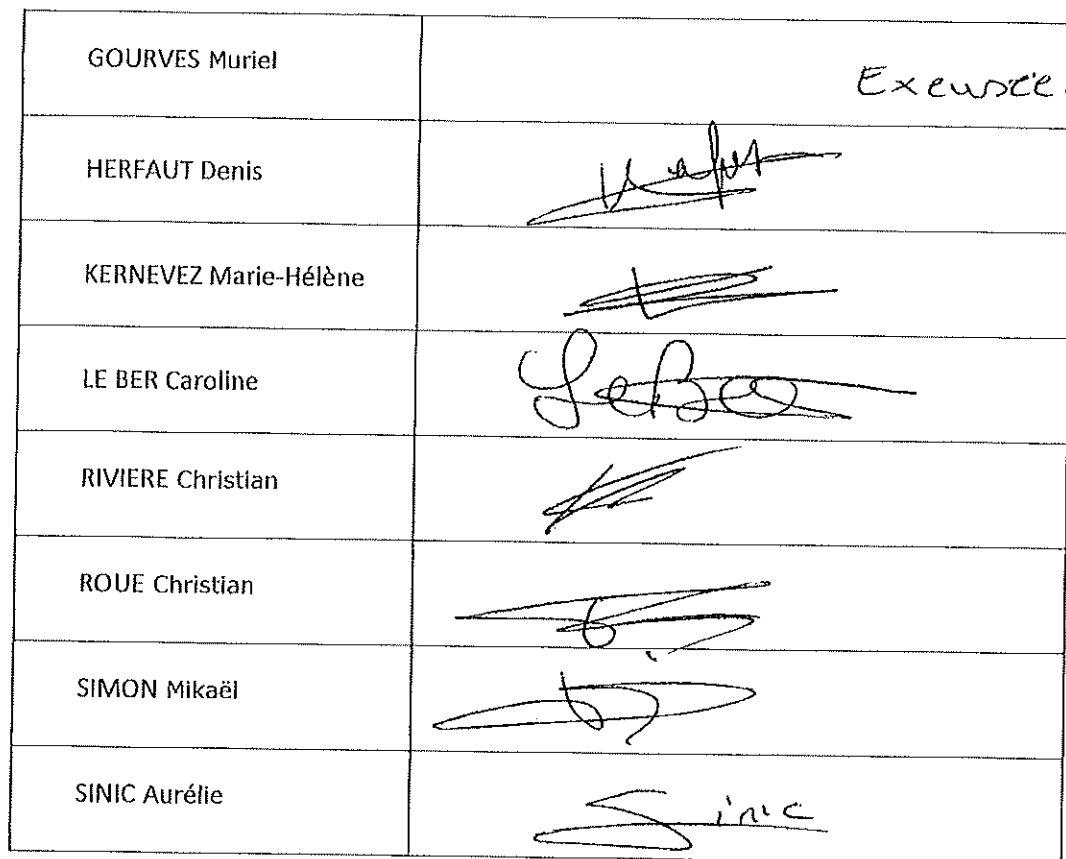 GOURVES Muriel
Excusée.
HERFAUT Denis
KERNEVEZ Marie-Hélène
LE BER Caroline
Le Ber
RIVIERE Christian
ROUE Christian
SIMON Mikaël
SINIC Aurélie
Sinic